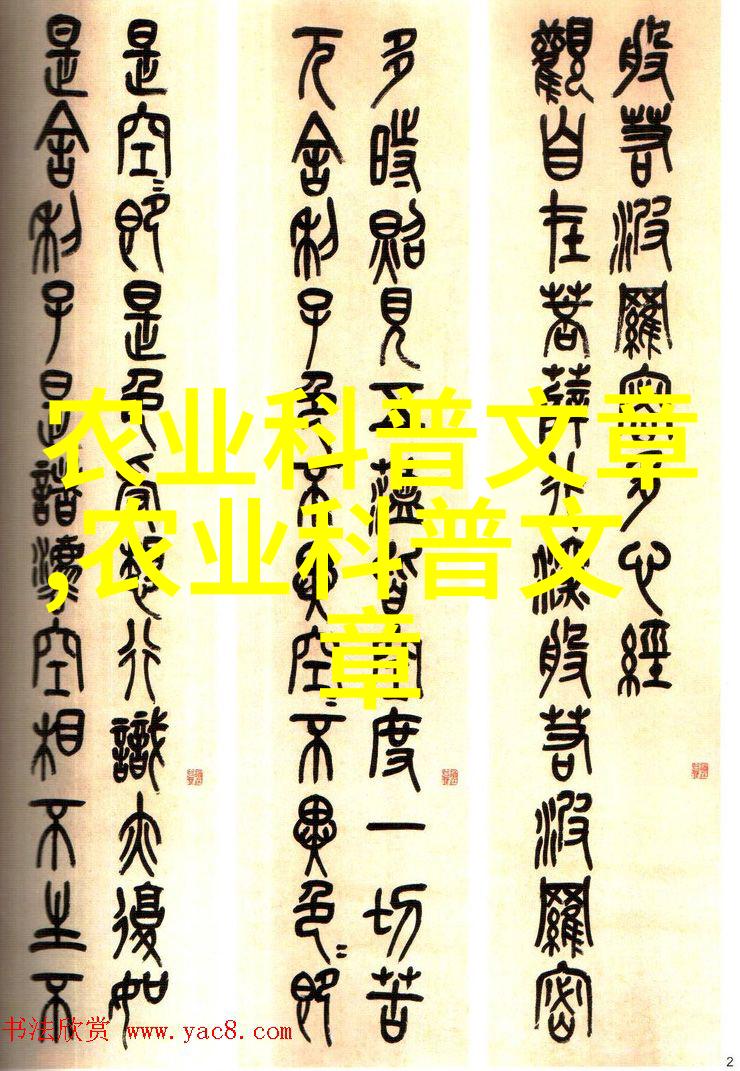 般若波羅密多心經
觀自在菩薩行深般若波羅密
多時照見五蘊皆空度一切苦
厄舍利子色不異空〻不異色〻即
是空〻即是色受想行識亦復如
是舍利子是諸灋空相不生不
农业科普文章
,农业科普文
章
书法欣赏 www.yac8.com
2